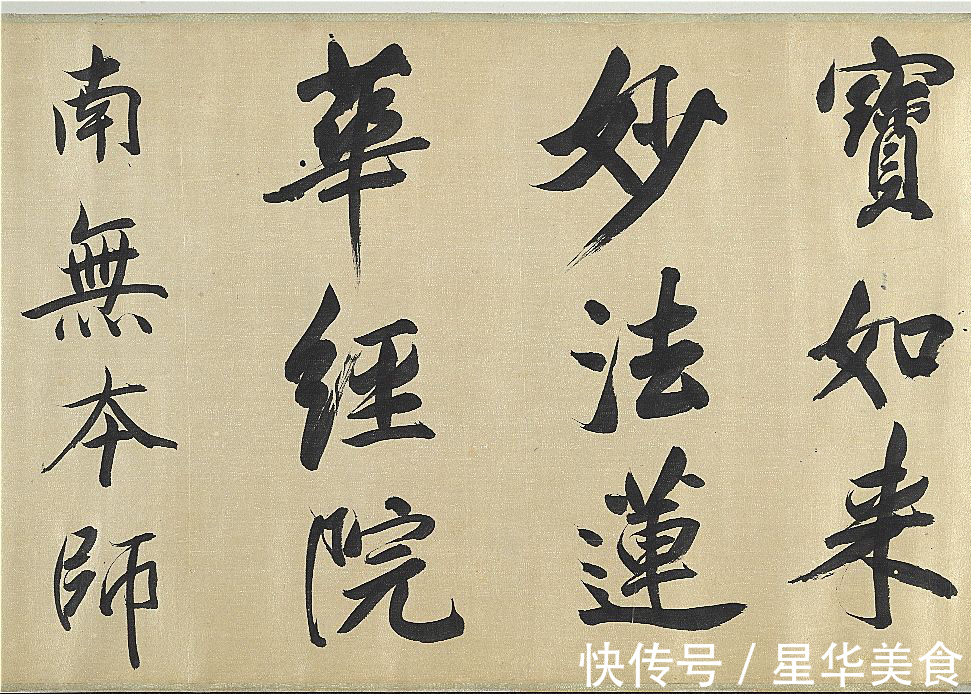 寶如来
妙法蓮
華經院
南無本師
快传号 / 星华美食